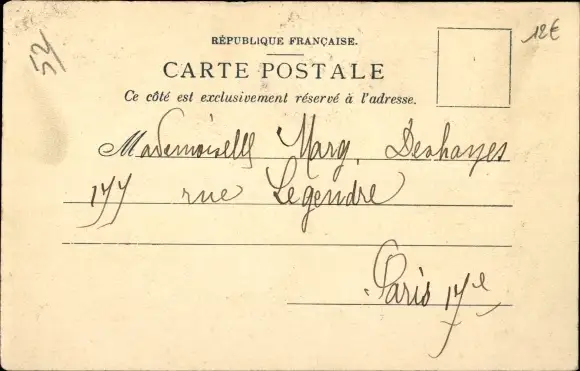 52
12€
RÉPUBLIQUE FRANÇAISE.
CARTE POSTALE
Ce côté est exclusivement réservé à l'adresse.
Mademoiselle Marg. Deshayes
177 rue Legendre
Paris 17e